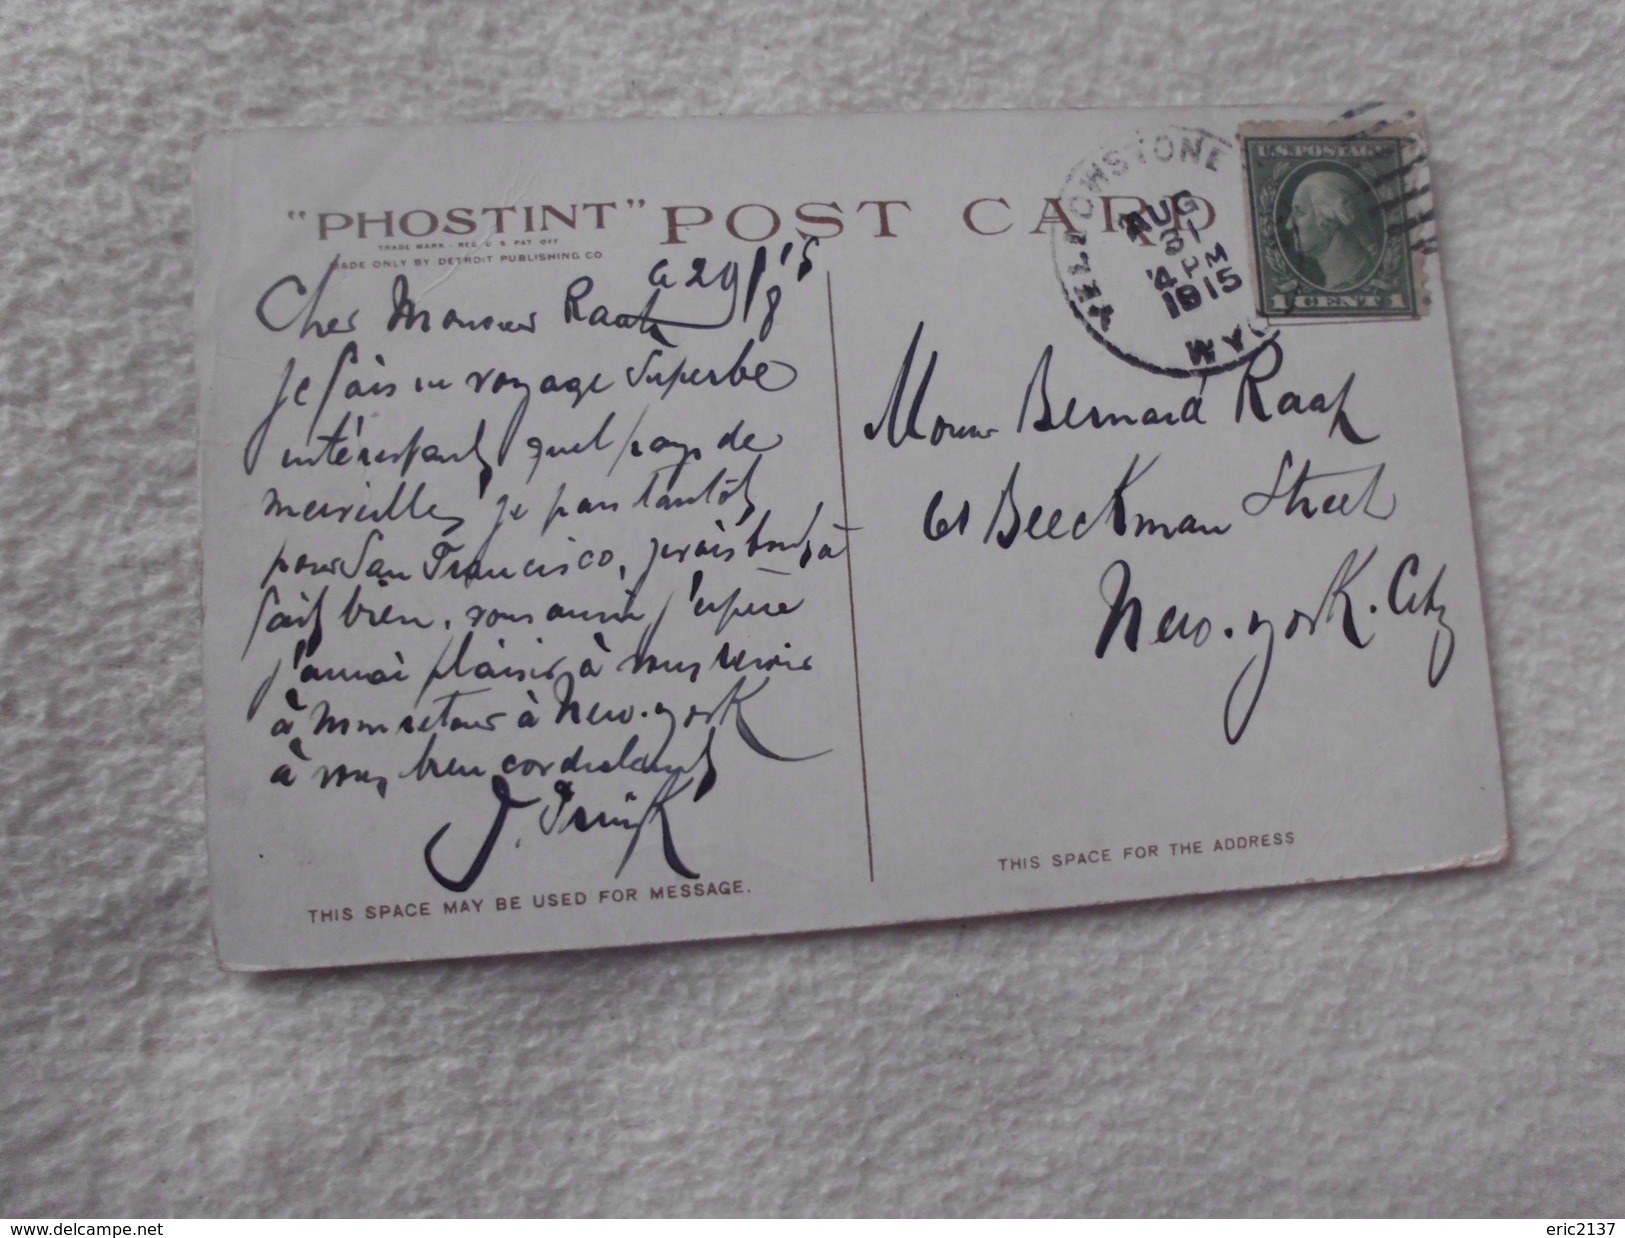 "PHOSTINT" POST CARD
TRADE MARK - REG. U S PAT OFF
MADE ONLY BY DETROIT PUBLISHING CO
YELLOWSTONE
AUG
31
4 PM
1915
WYO
U.S. POSTAGE
1 CENT 1
29/8 15
Cher Monsieur Raap
je fais un voyage superbe
intéressant, quel pays de
merveilles je pars tantôt
pour San Francisco, je vais tout à
fait bien, vous aussi j'espère
j'aurai plaisir à vous revoir
à mon retour à New-york
à vous bien cordialement
THIS SPACE MAY BE USED FOR MESSAGE.
Monsieur Bernard Raap
61 Beeckman Street
New-york-City
THIS SPACE FOR THE ADDRESS
www.delcampe.net
eric2137